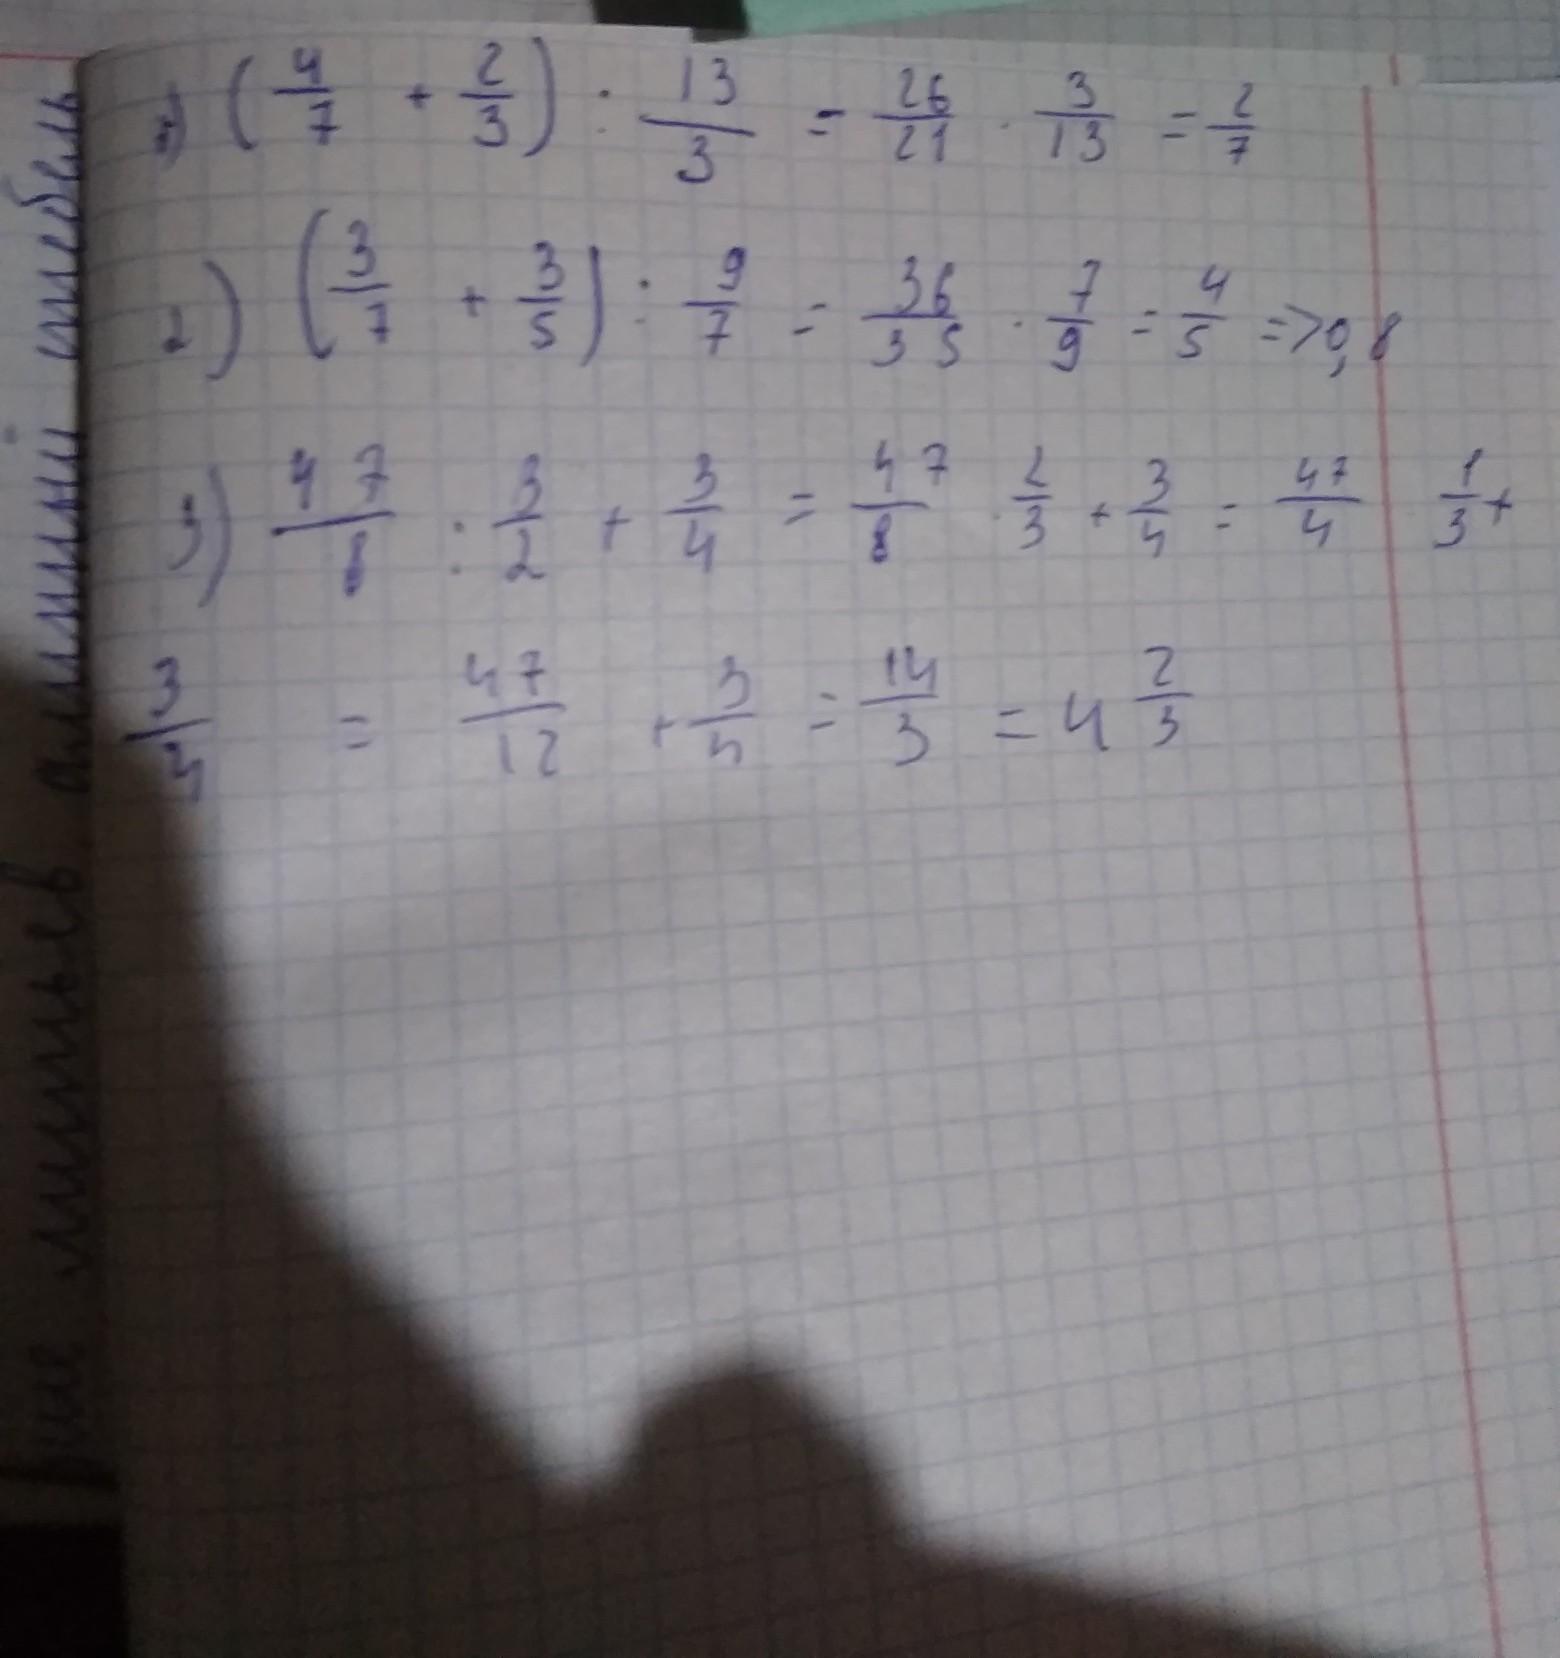 1) (4/7 + 2/3) : 13/3 = 26/21 · 3/13 = 2/7
2) (3/7 + 3/5) : 9/7 = 36/35 · 7/9 = 4/5 => 0,8
3) 47/8 : 3/2 + 3/4 = 47/8 · 2/3 + 3/4 = 47/4 1/3 +
3/4 = 47/12 + 3/4 = 14/3 = 4 2/3